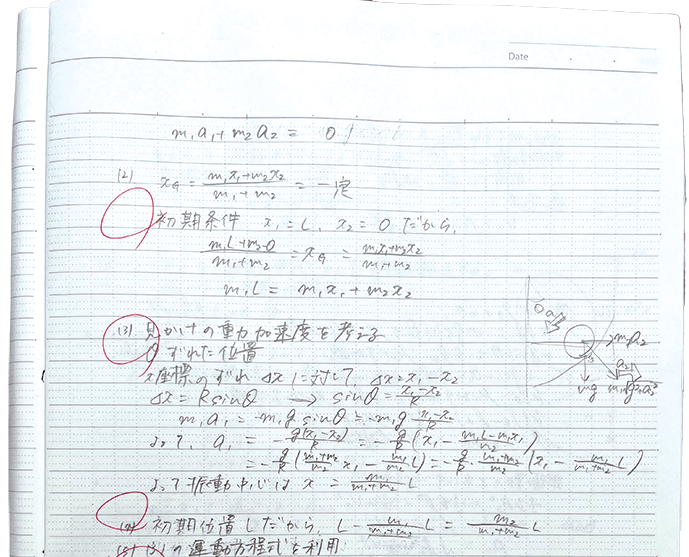 Date
m₁a₁+m₂a₂ = 0
(2) x_G = (m₁x₁+m₂x₂)/(m₁+m₂) = 一定
初期条件 x₁=L, x₂=0 だから,
(m₁L+m₂·0)/(m₁+m₂) = x_G = (m₁x₁+m₂x₂)/(m₁+m₂)
m₁L = m₁x₁+m₂x₂
(3) 見かけの重力加速度を考える
θずれた位置
x座標のずれ Δxに対して, Δx=x₁-x₂
Δx=Rsinθ → sinθ=(x₁-x₂)/R
m₁a₁ = -m₁g sinθ = -m₁g (x₁-x₂)/R
よって, a₁ = -g(x₁-x₂)/R = -g/R (x₁ - (m₁L-m₁x₁)/m₂)
= -g/R ((m₁+m₂)/m₂ x₁ - m₁/m₂ L) = -g/R · (m₁+m₂)/m₂ (x₁ - m₁/(m₁+m₂) L)
よって振動中心は x = m₁/(m₁+m₂) L
(4) 初期位置Lだから, L - m₁/(m₁+m₂) L = m₂/(m₁+m₂) L
の運動方程式を利用
a₂
mg